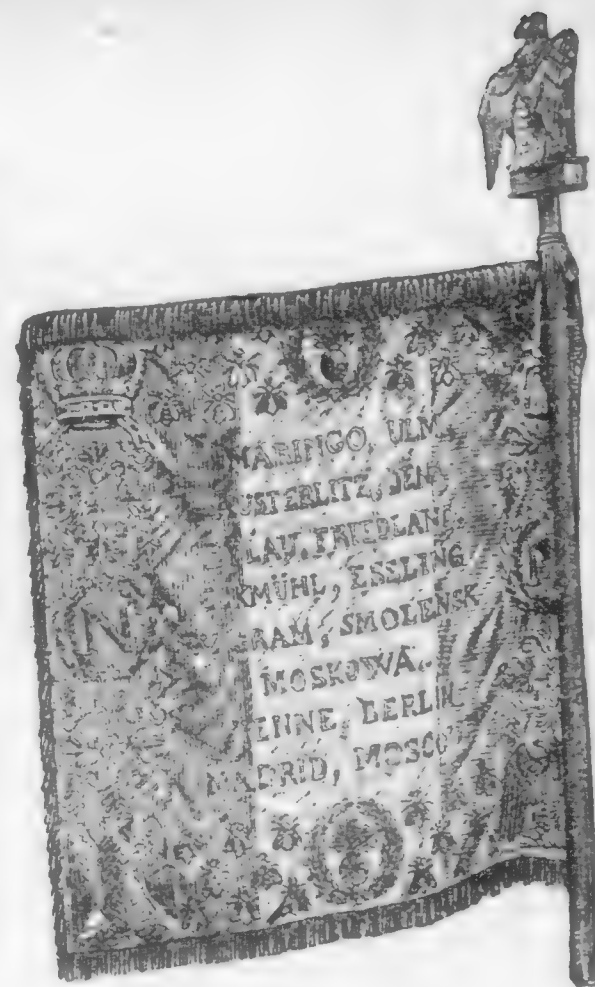 MARENGO, ULM
USTERLITZ, JENA
LAU, FRIEDLAND
KMÜHL, ESSLING
RAM, SMOLENSK
MOSKOWA,
ENNE, BERLIN
MADRID, MOSCO
N